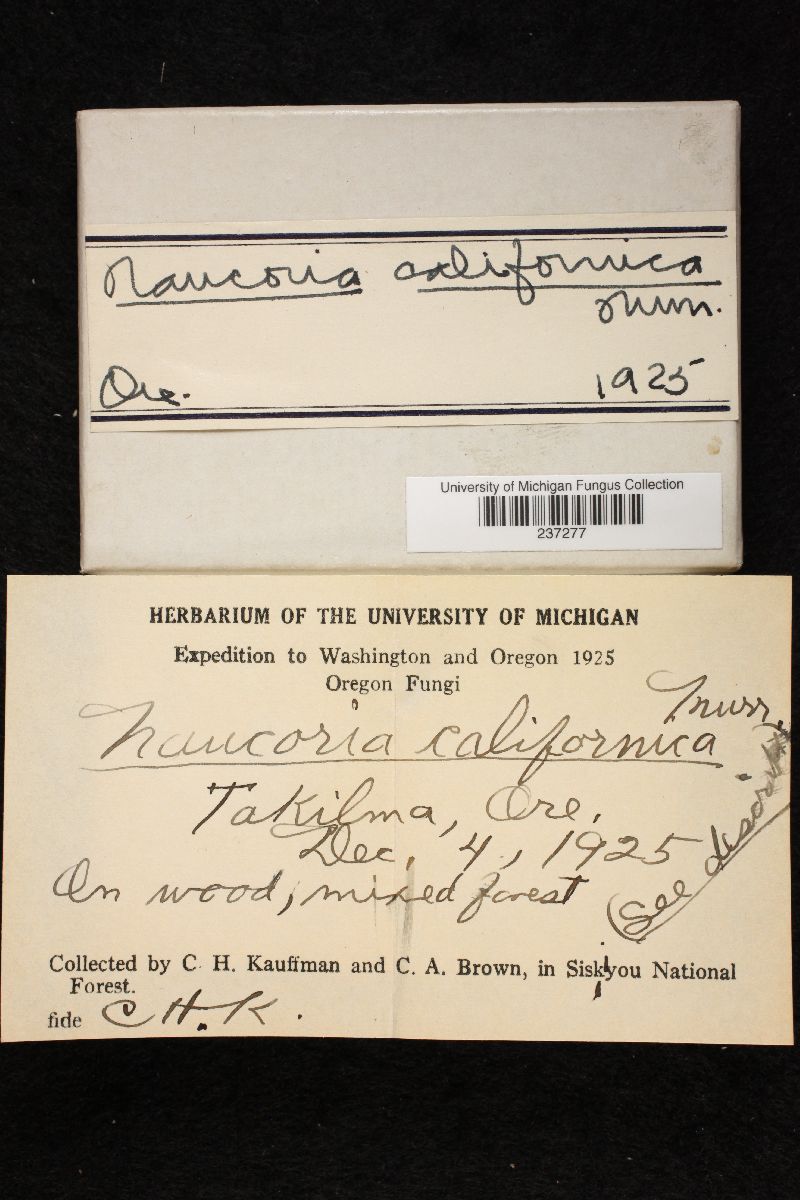 Naucoria californica
Murr.
Ore. 1925
University of Michigan Fungus Collection
237277
HERBARIUM OF THE UNIVERSITY OF MICHIGAN
Expedition to Washington and Oregon 1925
Oregon Fungi
Naucoria californica Murr.
Takilma, Ore.
Dec. 4, 1925
On wood, mixed forest
(See descript
Collected by C. H. Kauffman and C. A. Brown, in Siskiyou National
Forest.
fide C H. K.